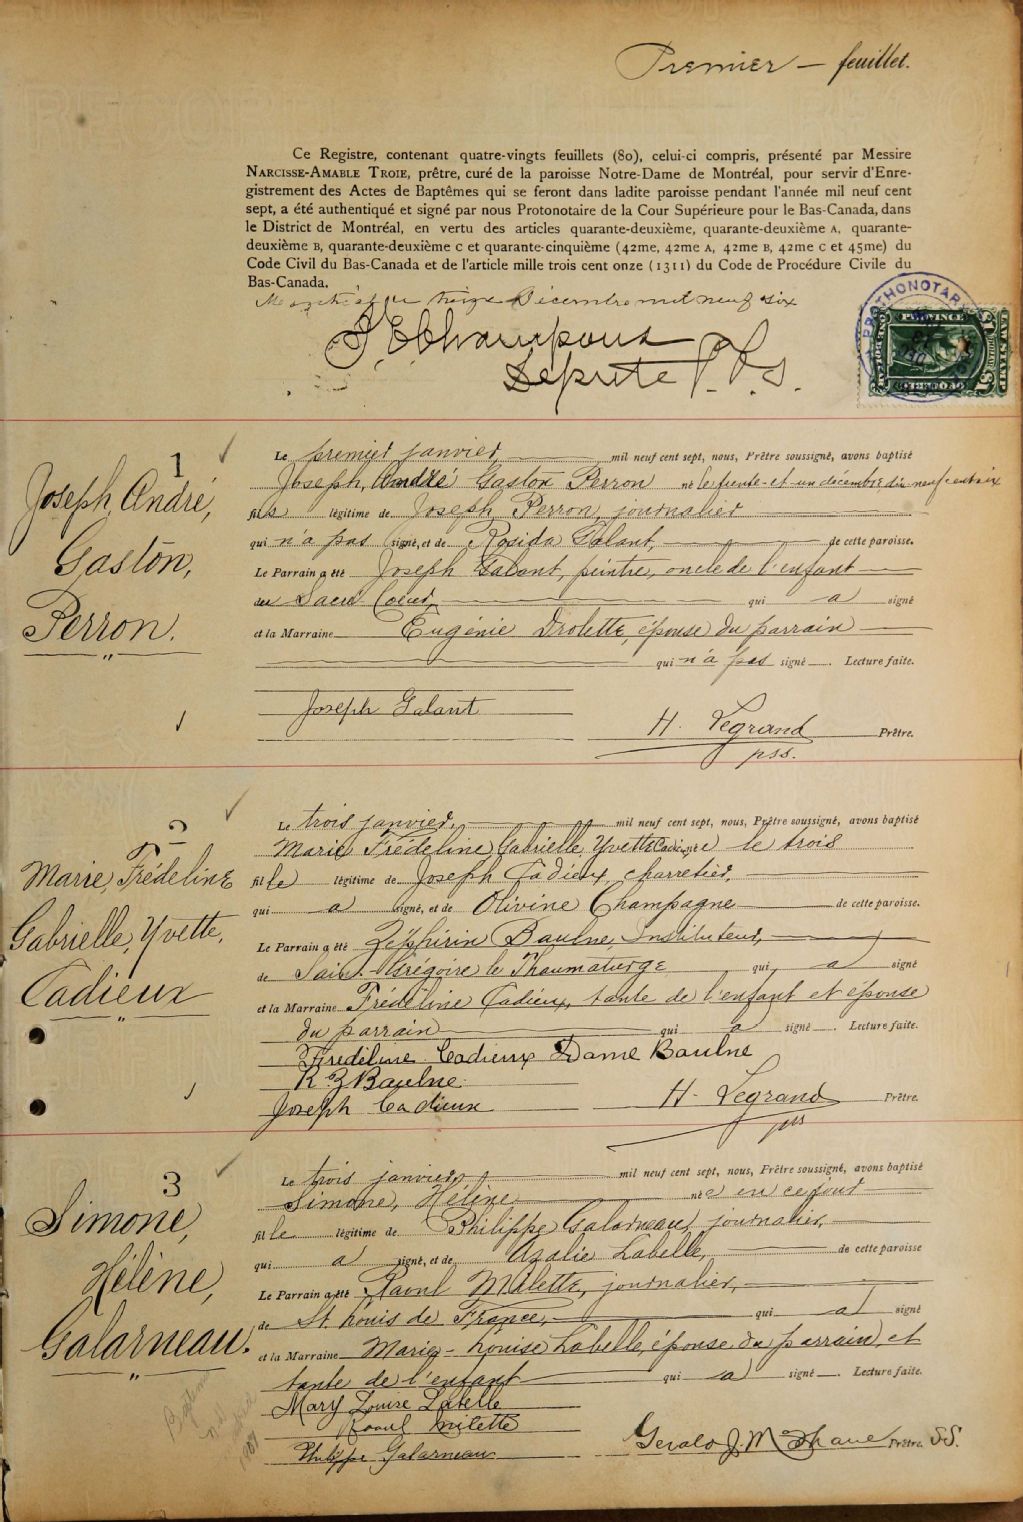 Premier — feuillet.
Ce Registre, contenant quatre-vingts feuillets (80), celui-ci compris, présenté par Messire
NARCISSE-AMABLE TROIE, prêtre, curé de la paroisse Notre-Dame de Montréal, pour servir d'Enre-
gistrement des Actes de Baptêmes qui se feront dans ladite paroisse pendant l'année mil neuf cent
sept, a été authentiqué et signé par nous Protonotaire de la Cour Supérieure pour le Bas-Canada, dans
le District de Montréal, en vertu des articles quarante-deuxième, quarante-deuxième A, quarante-
deuxième B, quarante-deuxième C et quarante-cinquième (42me, 42me A, 42me B, 42me C et 45me) du
Code Civil du Bas-Canada et de l'article mille trois cent onze (1311) du Code de Procédure Civile du
Bas-Canada.
Montréal ce treize Décembre mil neuf six
Député P.C.S.
PROTHONOTARY
PROVINCE
LAW STAMP
1
Joseph, André,
Gaston,
Perron.
Le premier janvier, mil neuf cent sept, nous, Prêtre soussigné, avons baptisé
Joseph, André Gaston Perron né le trente-et-un décembre dix-neuf-cent-six
fils légitime de Joseph Perron, journalier
qui n'a pas signé, et de Rosida Galant, de cette paroisse.
Le Parrain a été Joseph Galant, peintre, oncle de l'enfant
du Sacré Coeur, qui a signé
et la Marraine Eugénie Drolette, épouse du parrain
qui n'a pas signé. Lecture faite.
Joseph Galant
H. Legrand Prêtre.
pss.
2
Marie, Frédeline
Gabrielle, Yvette,
Cadieux
Le trois janvier, mil neuf cent sept, nous, Prêtre soussigné, avons baptisé
Marie Frédeline, Gabrielle, Yvette Cadieux née le trois
fille légitime de Joseph Cadieux, charretier,
qui a signé, et de Olivine Champagne de cette paroisse.
Le Parrain a été Zéphirin Baulne, Instituteur,
de Saint-Grégoire le Thaumaturge qui a signé
et la Marraine Frédéline Cadieux, tante de l'enfant et épouse
du parrain qui a signé. Lecture faite.
Frédéline Cadieux Dame Baulne
R. Z Baulne.
Joseph Cadieux
H. Legrand Prêtre.
pss
3
Simone,
Hélène,
Galarneau.
Le trois janvier, mil neuf cent sept, nous, Prêtre soussigné, avons baptisé
Simone, Hélène née en ce jour
fille légitime de Philippe Galarneau, journalier,
qui a signé, et de Azalie Labelle, de cette paroisse
Le Parrain a été Raoul Milette, journalier,
de St. Louis de France, qui a signé
et la Marraine Marie-Louise Labelle, épouse du parrain, et
tante de l'enfant qui a signé. Lecture faite.
Mary Louise Labelle
Raoul Milette
Philippe Galarneau
Gerald J. McShane Prêtre SS.